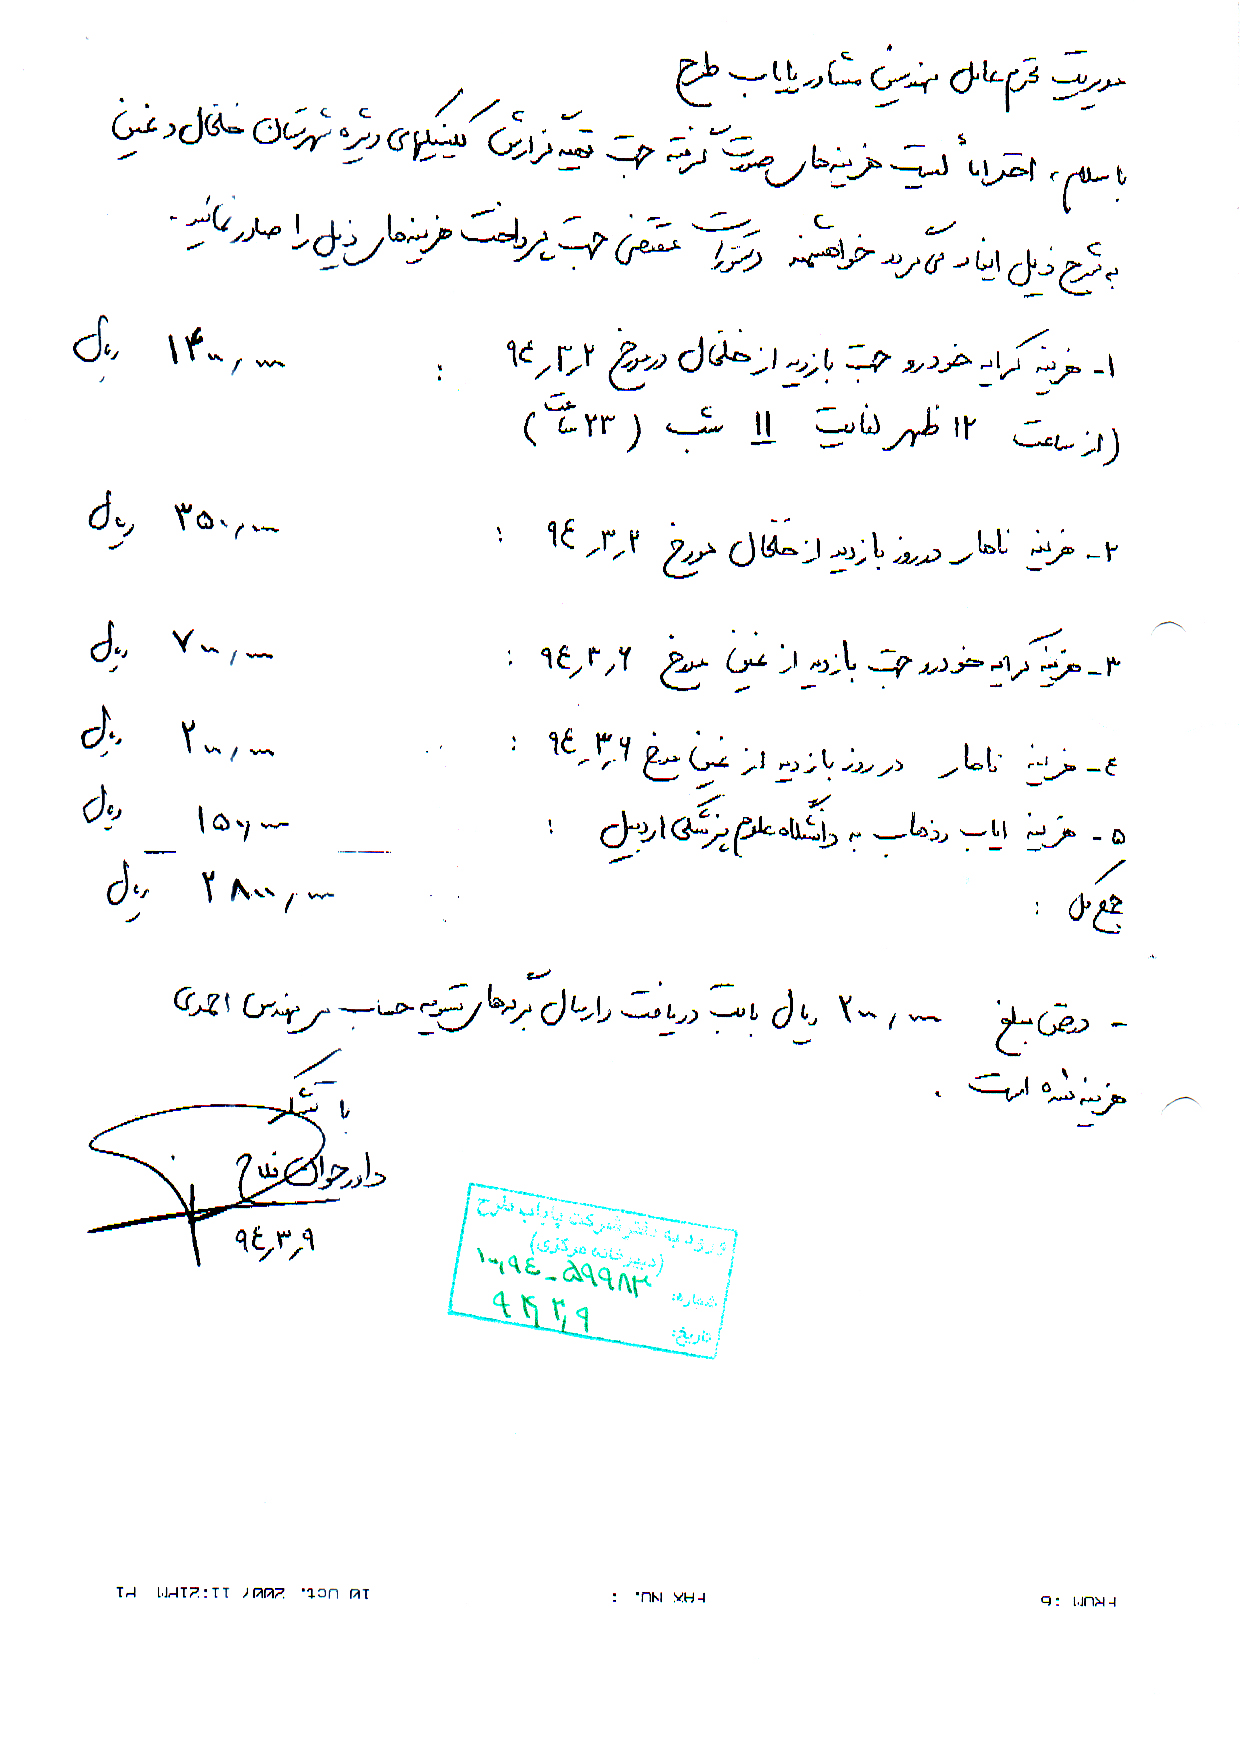 مدیریت محترم عامل مهندسین مشاور پایاب طرح
با سلام، احتراماً لیست هزینه‌های صورت گرفته جهت تهیه گزارش کلینیکهای ویژه شهرستان خلخال و نمین
به شرح ذیل ایفاد می گردد خواهشمند دستورات مقتضی جهت پرداخت هزینه‌های ذیل را صادر نمائید.
۱- هزینه کرایه خودرو جهت بازدید از خلخال در مورخ ۹٤,۳,۲ : ۱۴۰۰,۰۰۰ ریال
(از ساعت ۱۲ ظهر لغایت ۱۱ شب (۲۳ ساعت)
۲- هزینه ناهار در روز بازدید از خلخال مورخ ۹٤,۳,۲ : ۳۵۰,۰۰۰ ریال
۳- هزینه کرایه خودرو جهت بازدید از نمین مورخ ۹٤,۳,۶ : ۷۰۰,۰۰۰ ریال
٤- هزینه ناهار در روز بازدید از نمین مورخ ۹٤,۳,۶ : ۲۰۰,۰۰۰ ریال
۵- هزینه ایاب و ذهاب به دانشگاه علوم پزشکی اردبیل : ۱۵۰,۰۰۰ ریال
جمع کل : ۲۸۰۰,۰۰۰ ریال
- در ضمن مبلغ ۲۰۰,۰۰۰ ریال بابت دریافت و ارسال برگه‌های تسویه حساب مهندس احمدی
هزینه شده است.
با تشکر
داور جوان فلاح
۹٤,۳,۹
ورود به دفتر شرکت پایاب طرح
(دبیرخانه مرکزی)
شماره: ۱۰۰,۹٤-۵۹۹۸۳
تاریخ: ۹۴,۳,۹
FROM :6 FAX NO. : 10 OCT. 2007 11:21PM P1